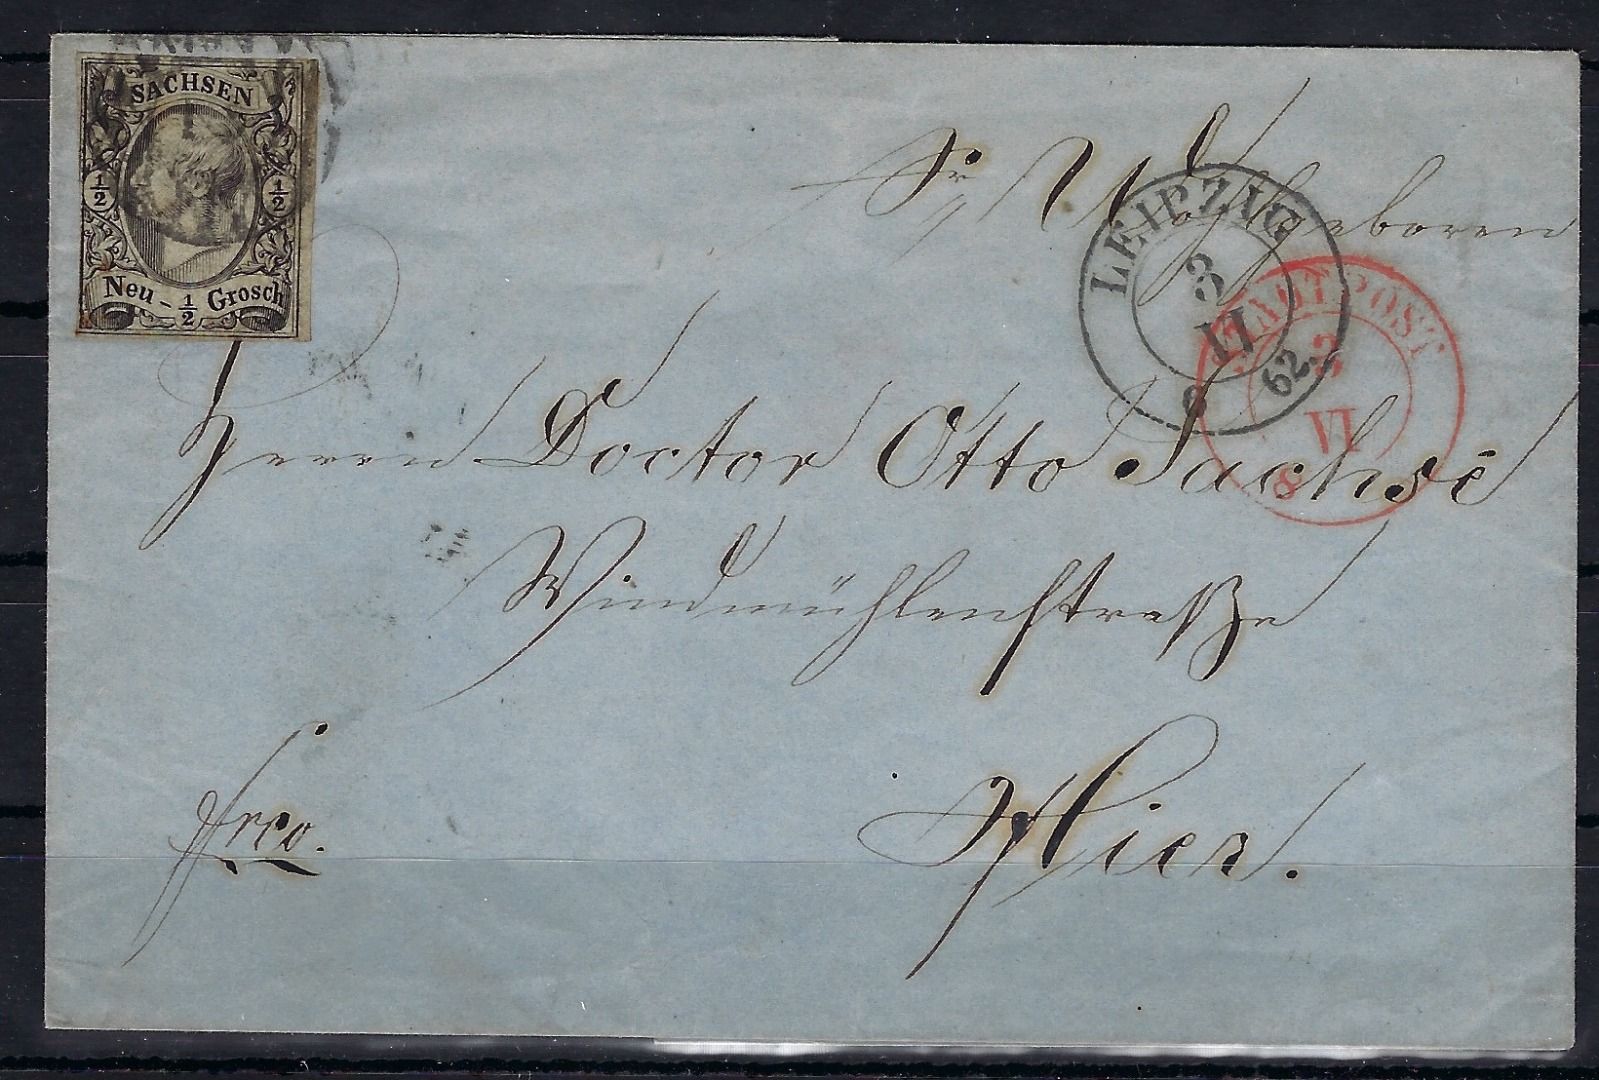 SACHSEN
1/2 1/2
Neu - 1/2 Grosch
Sr Wohlgeboren
LEIPZIG
3
VI
62
STADTPOST
3
VI
8
Herrn Doctor Otto Sachse
Windmühlenstraße
frco.
Hier.